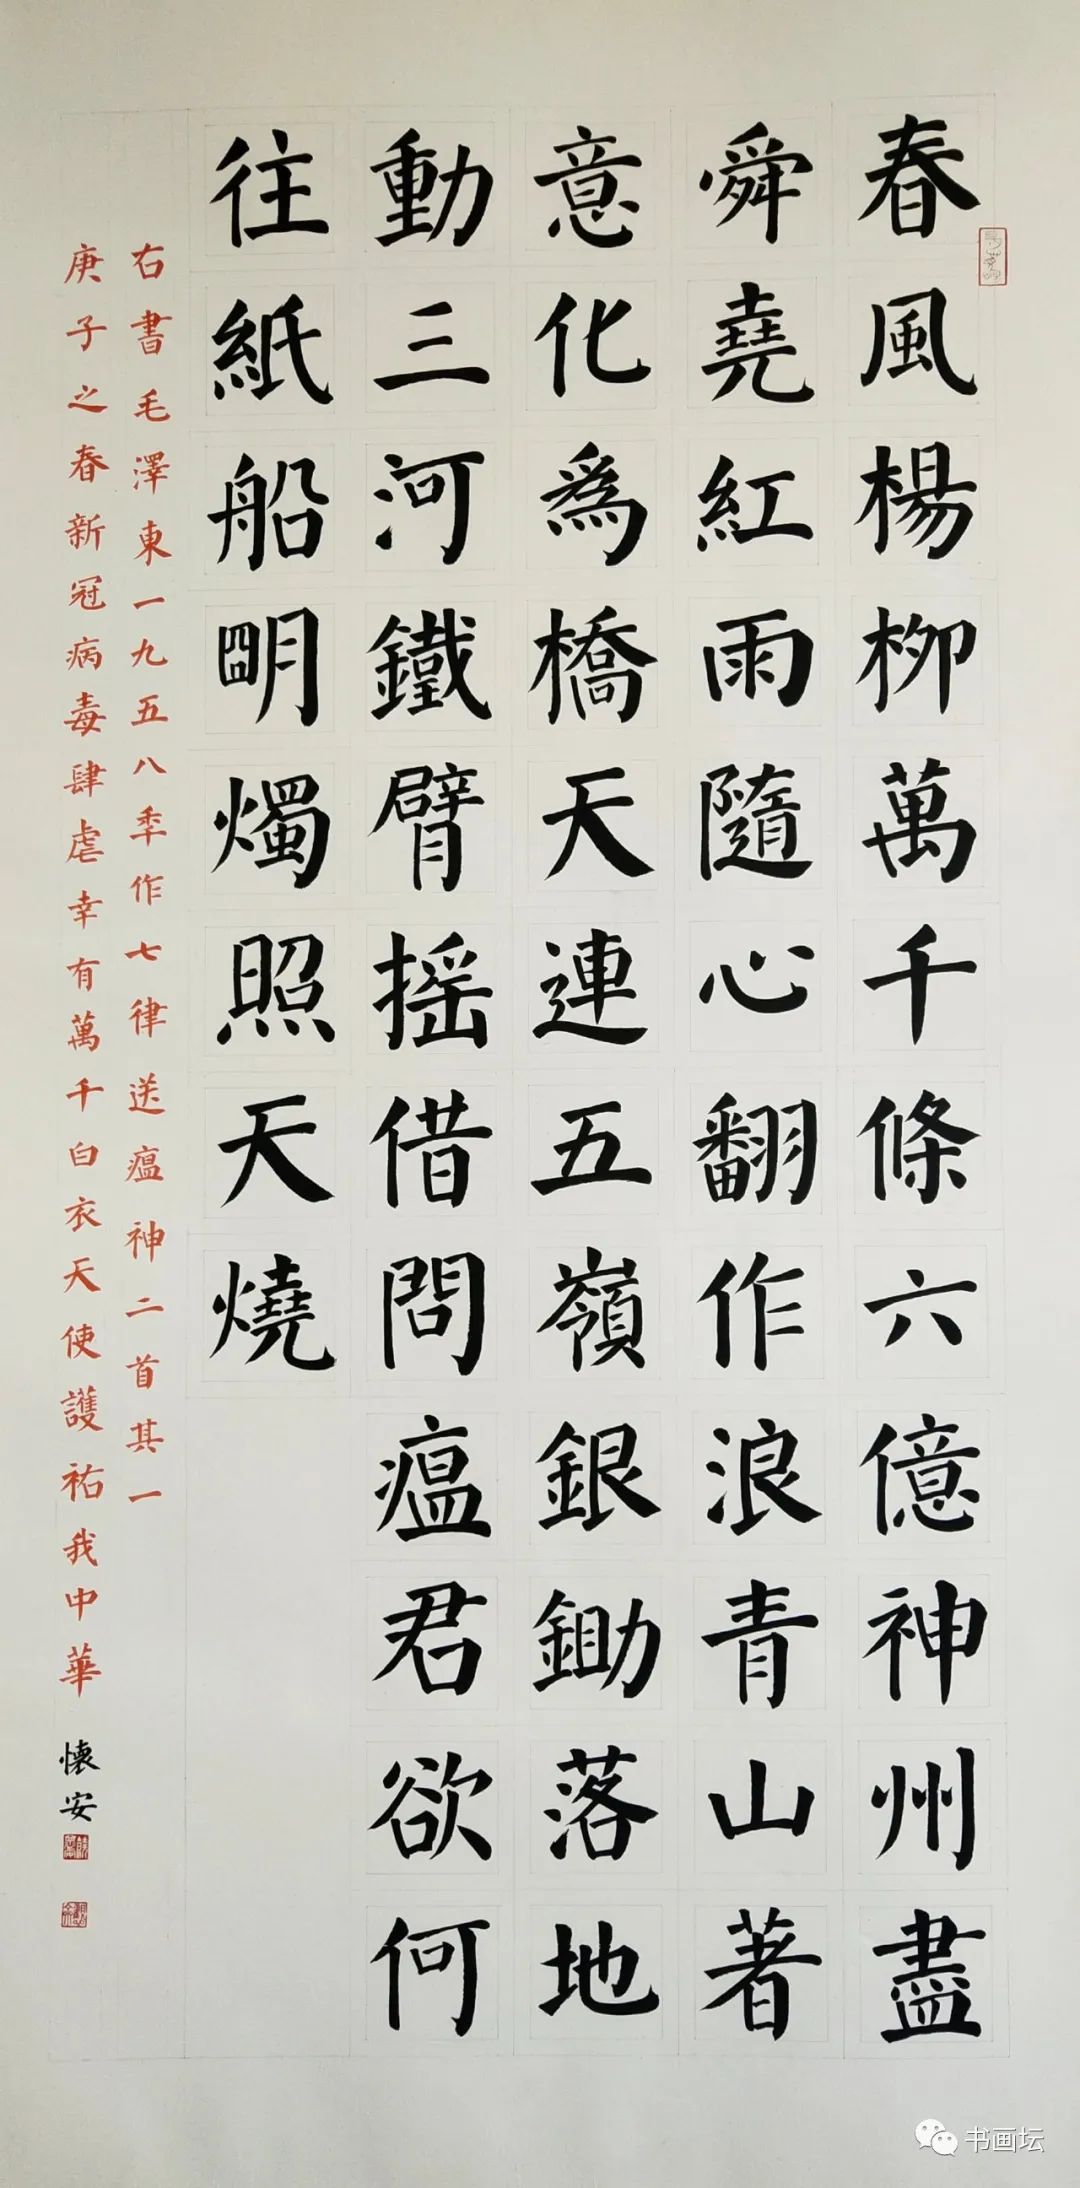 春風楊柳萬千條六億神州盡
舜堯紅雨隨心翻作浪青山著
意化為橋天連五嶺銀鋤落地
動三河鐵臂摇借問瘟君欲何
往紙船明燭照天燒
右書毛澤東一九五八季作七律送瘟神二首其一
庚子之春新冠病毒肆虐幸有萬千白衣天使護祐我中華
懷安
书画坛